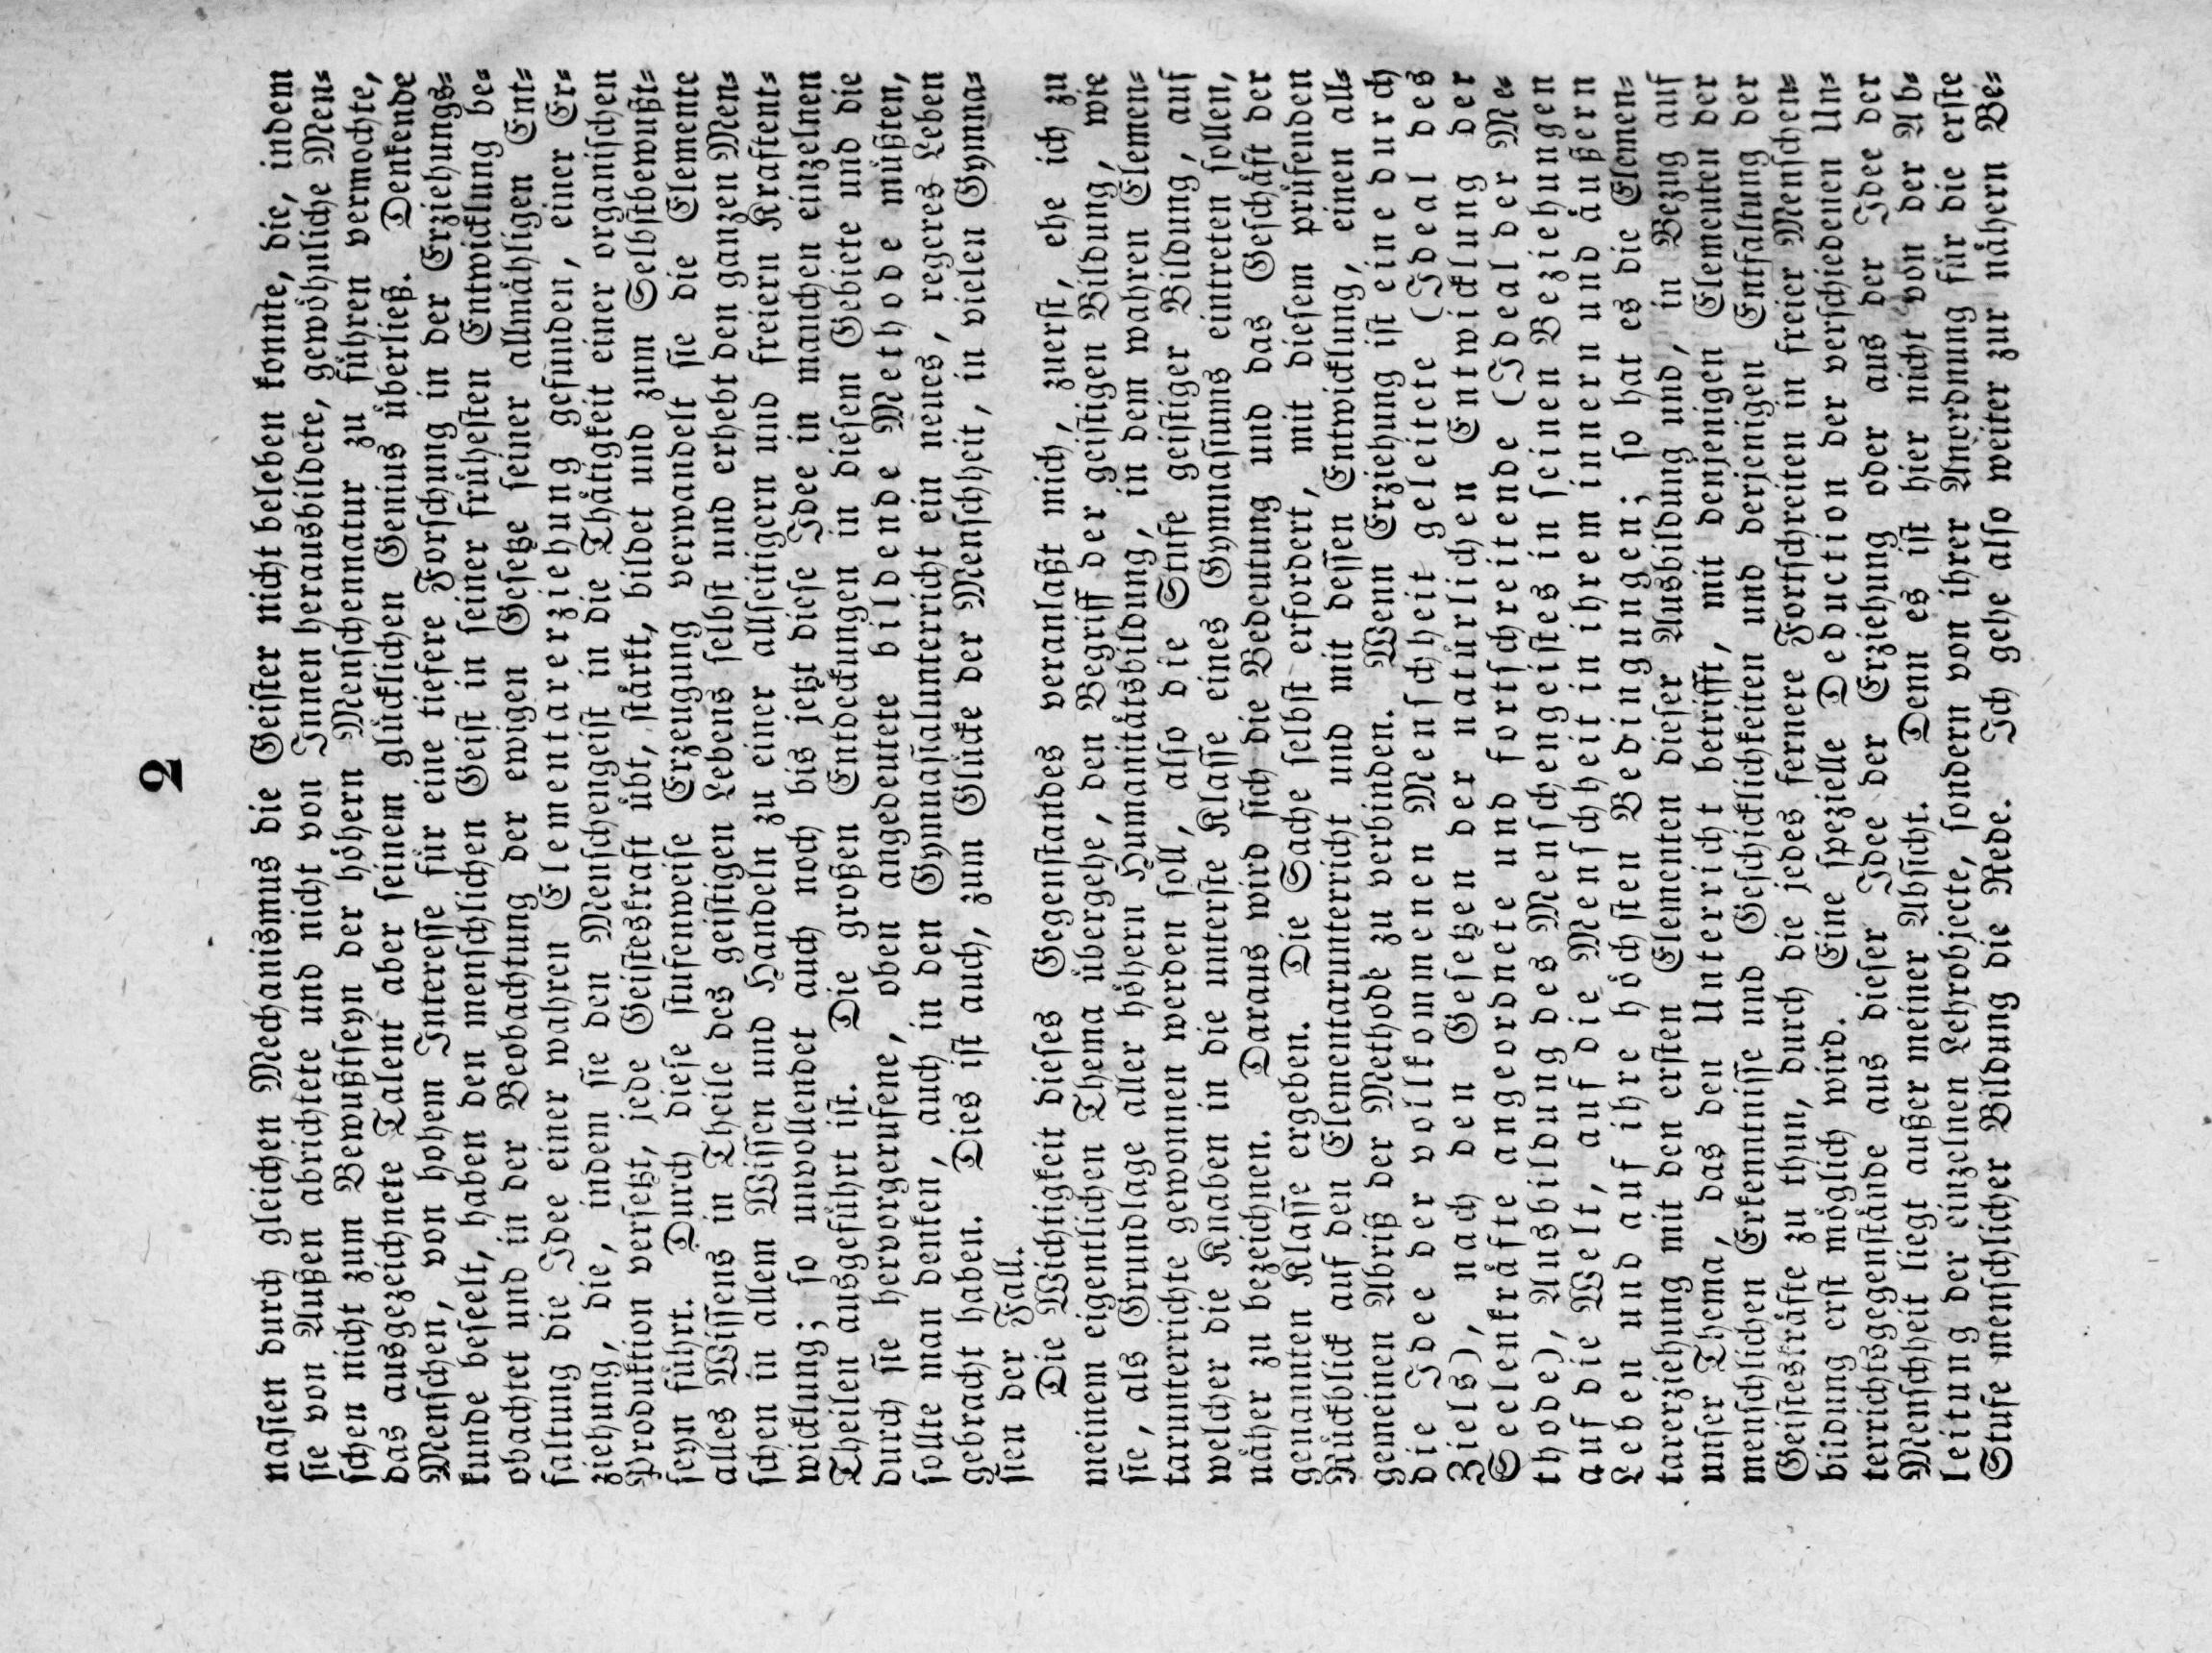 2
nasien durch gleichen Mechanismus die Geister nicht beleben konnte, die, indem
sie von Außen abrichtete und nicht von Innen herausbildete, gewöhnliche Men-
schen nicht zum Bewußtseyn der höhern Menschennatur zu führen vermochte,
das ausgezeichnete Talent aber seinem glücklichen Genius überließ. Denkende
Menschen, von hohem Interesse für eine tiefere Forschung in der Erziehungs-
kunde beseelt, haben den menschlichen Geist in seiner frühesten Entwicklung be-
obachtet und in der Beobachtung der ewigen Gesetze seiner allmähligen Ent-
faltung die Idee einer wahren Elementarerziehung gefunden, einer Er-
ziehung, die, indem sie den Menschengeist in die Thätigkeit einer organischen
Produktion versetzt, jede Geisteskraft übt, stärkt, bildet und zum Selbstbewußt-
seyn führt. Durch diese stufenweise Erzeugung verwandelt sie die Elemente
alles Wissens in Theile des geistigen Lebens selbst und erhebt den ganzen Men-
schen in allem Wissen und Handeln zu einer allseitigern und freiern Kraftent-
wicklung; so unvollendet auch noch bis jetzt diese Idee in manchen einzelnen
Theilen ausgeführt ist. Die großen Entdeckungen in diesem Gebiete und die
durch sie hervorgerufene, oben angedeutete bildende Methode müßten,
sollte man denken, auch in den Gymnasialunterricht ein neues, regeres Leben
gebracht haben. Dies ist auch, zum Glücke der Menschheit, in vielen Gymna-
sien der Fall.
Die Wichtigkeit dieses Gegenstandes veranlaßt mich, zuerst, ehe ich zu
meinem eigentlichen Thema übergehe, den Begriff der geistigen Bildung, wie
sie, als Grundlage aller höhern Humanitätsbildung, in dem wahren Elemen-
tarunterrichte gewonnen werden soll, also die Stufe geistiger Bildung, auf
welcher die Knaben in die unterste Klasse eines Gymnasiums eintreten sollen,
näher zu bezeichnen. Daraus wird sich die Bedeutung und das Geschäft der
genannten Klasse ergeben. Die Sache selbst erfordert, mit diesem prüfenden
Rückblick auf den Elementarunterricht und mit dessen Entwicklung, einen all-
gemeinen Abriß der Methode zu verbinden. Wenn Erziehung ist eine durch
die Idee der vollkommenen Menschheit geleitete (Ideal des
Ziels), nach den Gesetzen der natürlichen Entwicklung der
Seelenkräfte angeordnete und fortschreitende (Ideal der Me-
thode), Ausbildung des Menschengeistes in seinen Beziehungen
auf die Welt, auf die Menschheit in ihrem innern und äußern
Leben und auf ihre höchsten Bedingungen; so hat es die Elemen-
tarerziehung mit den ersten Elementen dieser Ausbildung und, in Bezug auf
unser Thema, das den Unterricht betrifft, mit denjenigen Elementen der
menschlichen Erkenntnisse und Geschicklichkeiten und derjenigen Entfaltung der
Geisteskräfte zu thun, durch die jedes fernere Fortschreiten in freier Menschen-
bildung erst möglich wird. Eine spezielle Deduction der verschiedenen Un-
terrichtsgegenstände aus dieser Idee der Erziehung oder aus der Idee der
Menschheit liegt außer meiner Absicht. Denn es ist hier nicht von der Ab-
leitung der einzelnen Lehrobjecte, sondern von ihrer Anordnung für die erste
Stufe menschlicher Bildung die Rede. Ich gehe also weiter zur nähern Be-